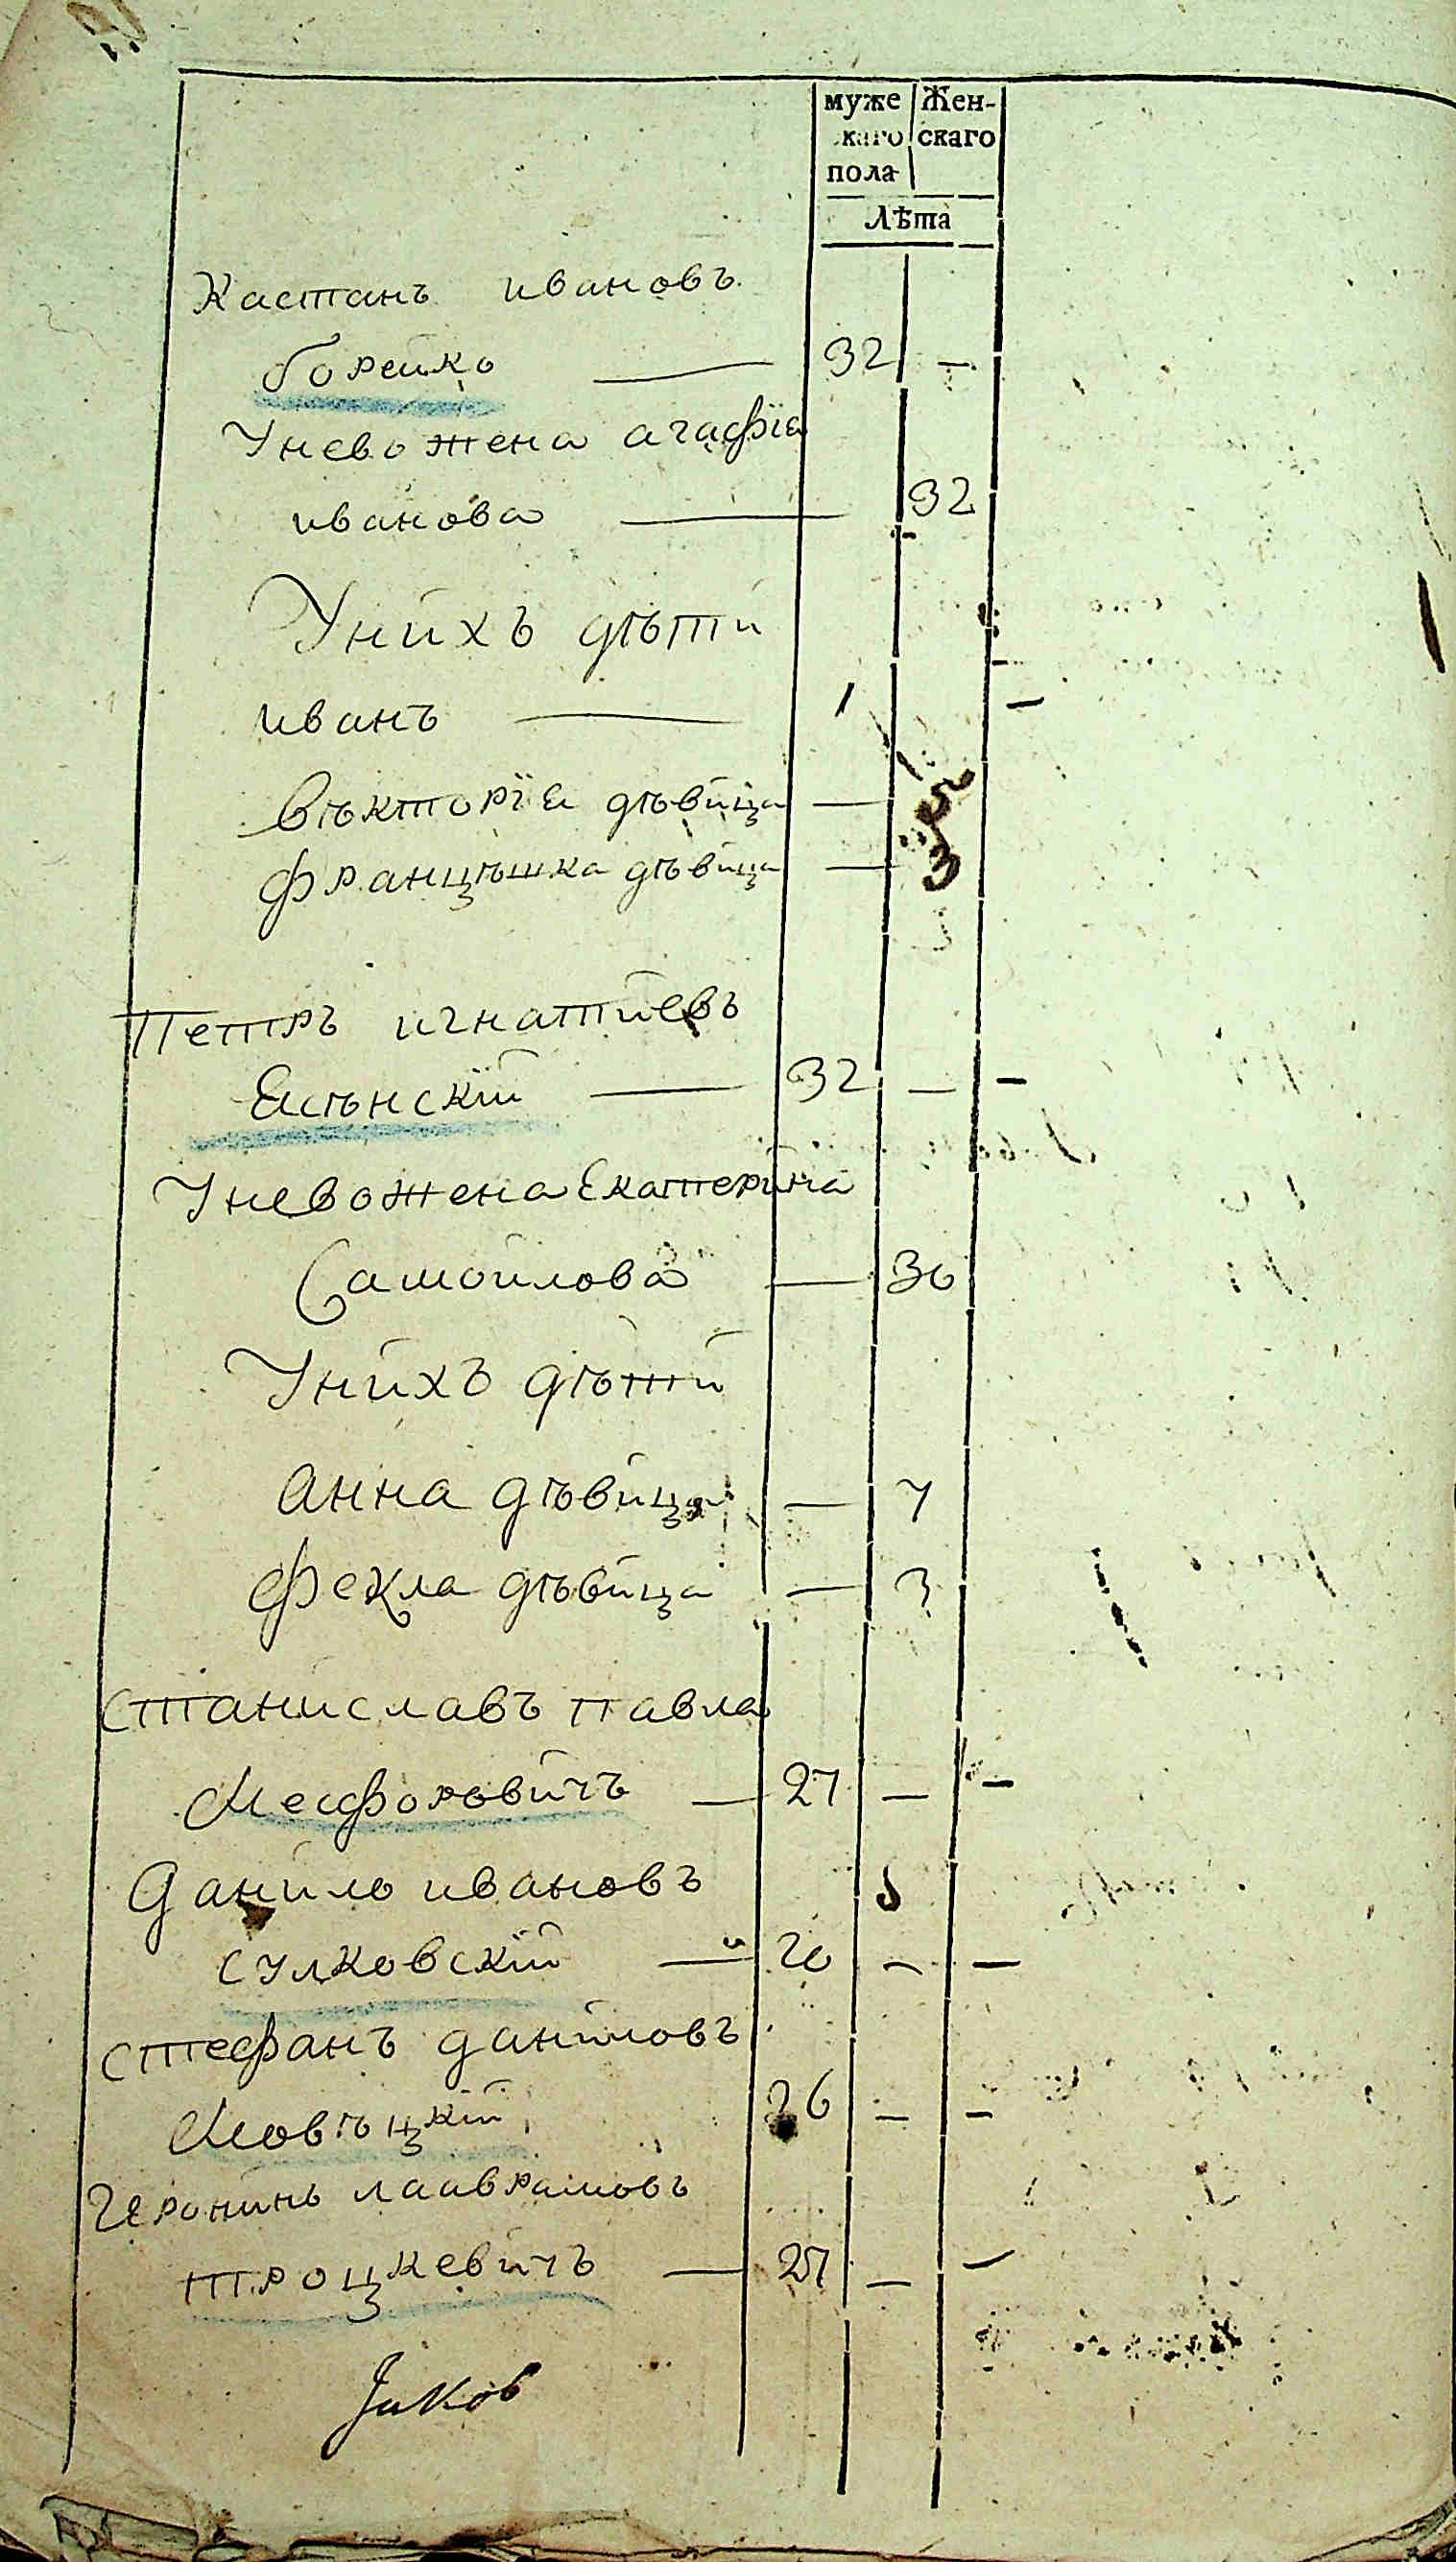 муже Жен-
скаго скаго
пола
Лѣта
Кастанъ ивановъ
борейко — 32 —
Унево жена агафїа
иванова — 32
Унихъ дѣти
иванъ — 1 —
вѣкторїа дѣвица — 5
францѣшка дѣвица — 3
Петръ игнатиевъ
Ясѣнскїй — 32 — —
Унево жена Екатерина
Самоилова — 30
Унихъ дѣти
анна дѣвица — 7
фекла дѣвица — 3
станиславъ павла
Мефоровичъ — 27 — —
данило ивановъ
сулковскїй — 20 — —
стефанъ даниловъ
Мовѣцкїй 26 — —
Иеронинь лаврамовъ
троцкевичъ — 27 — —